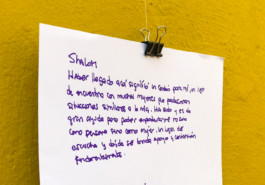 Shalom
Haber llegado acá significó un cambio para mí, un lugar
de encuentro con muchas mujeres que
situaciones similares a la mía. Ha sido y es de
gran ayuda para poder empoderarme no
como persona sino como mujer. Un lugar de
escucha y donde se brinda apoyo y contención